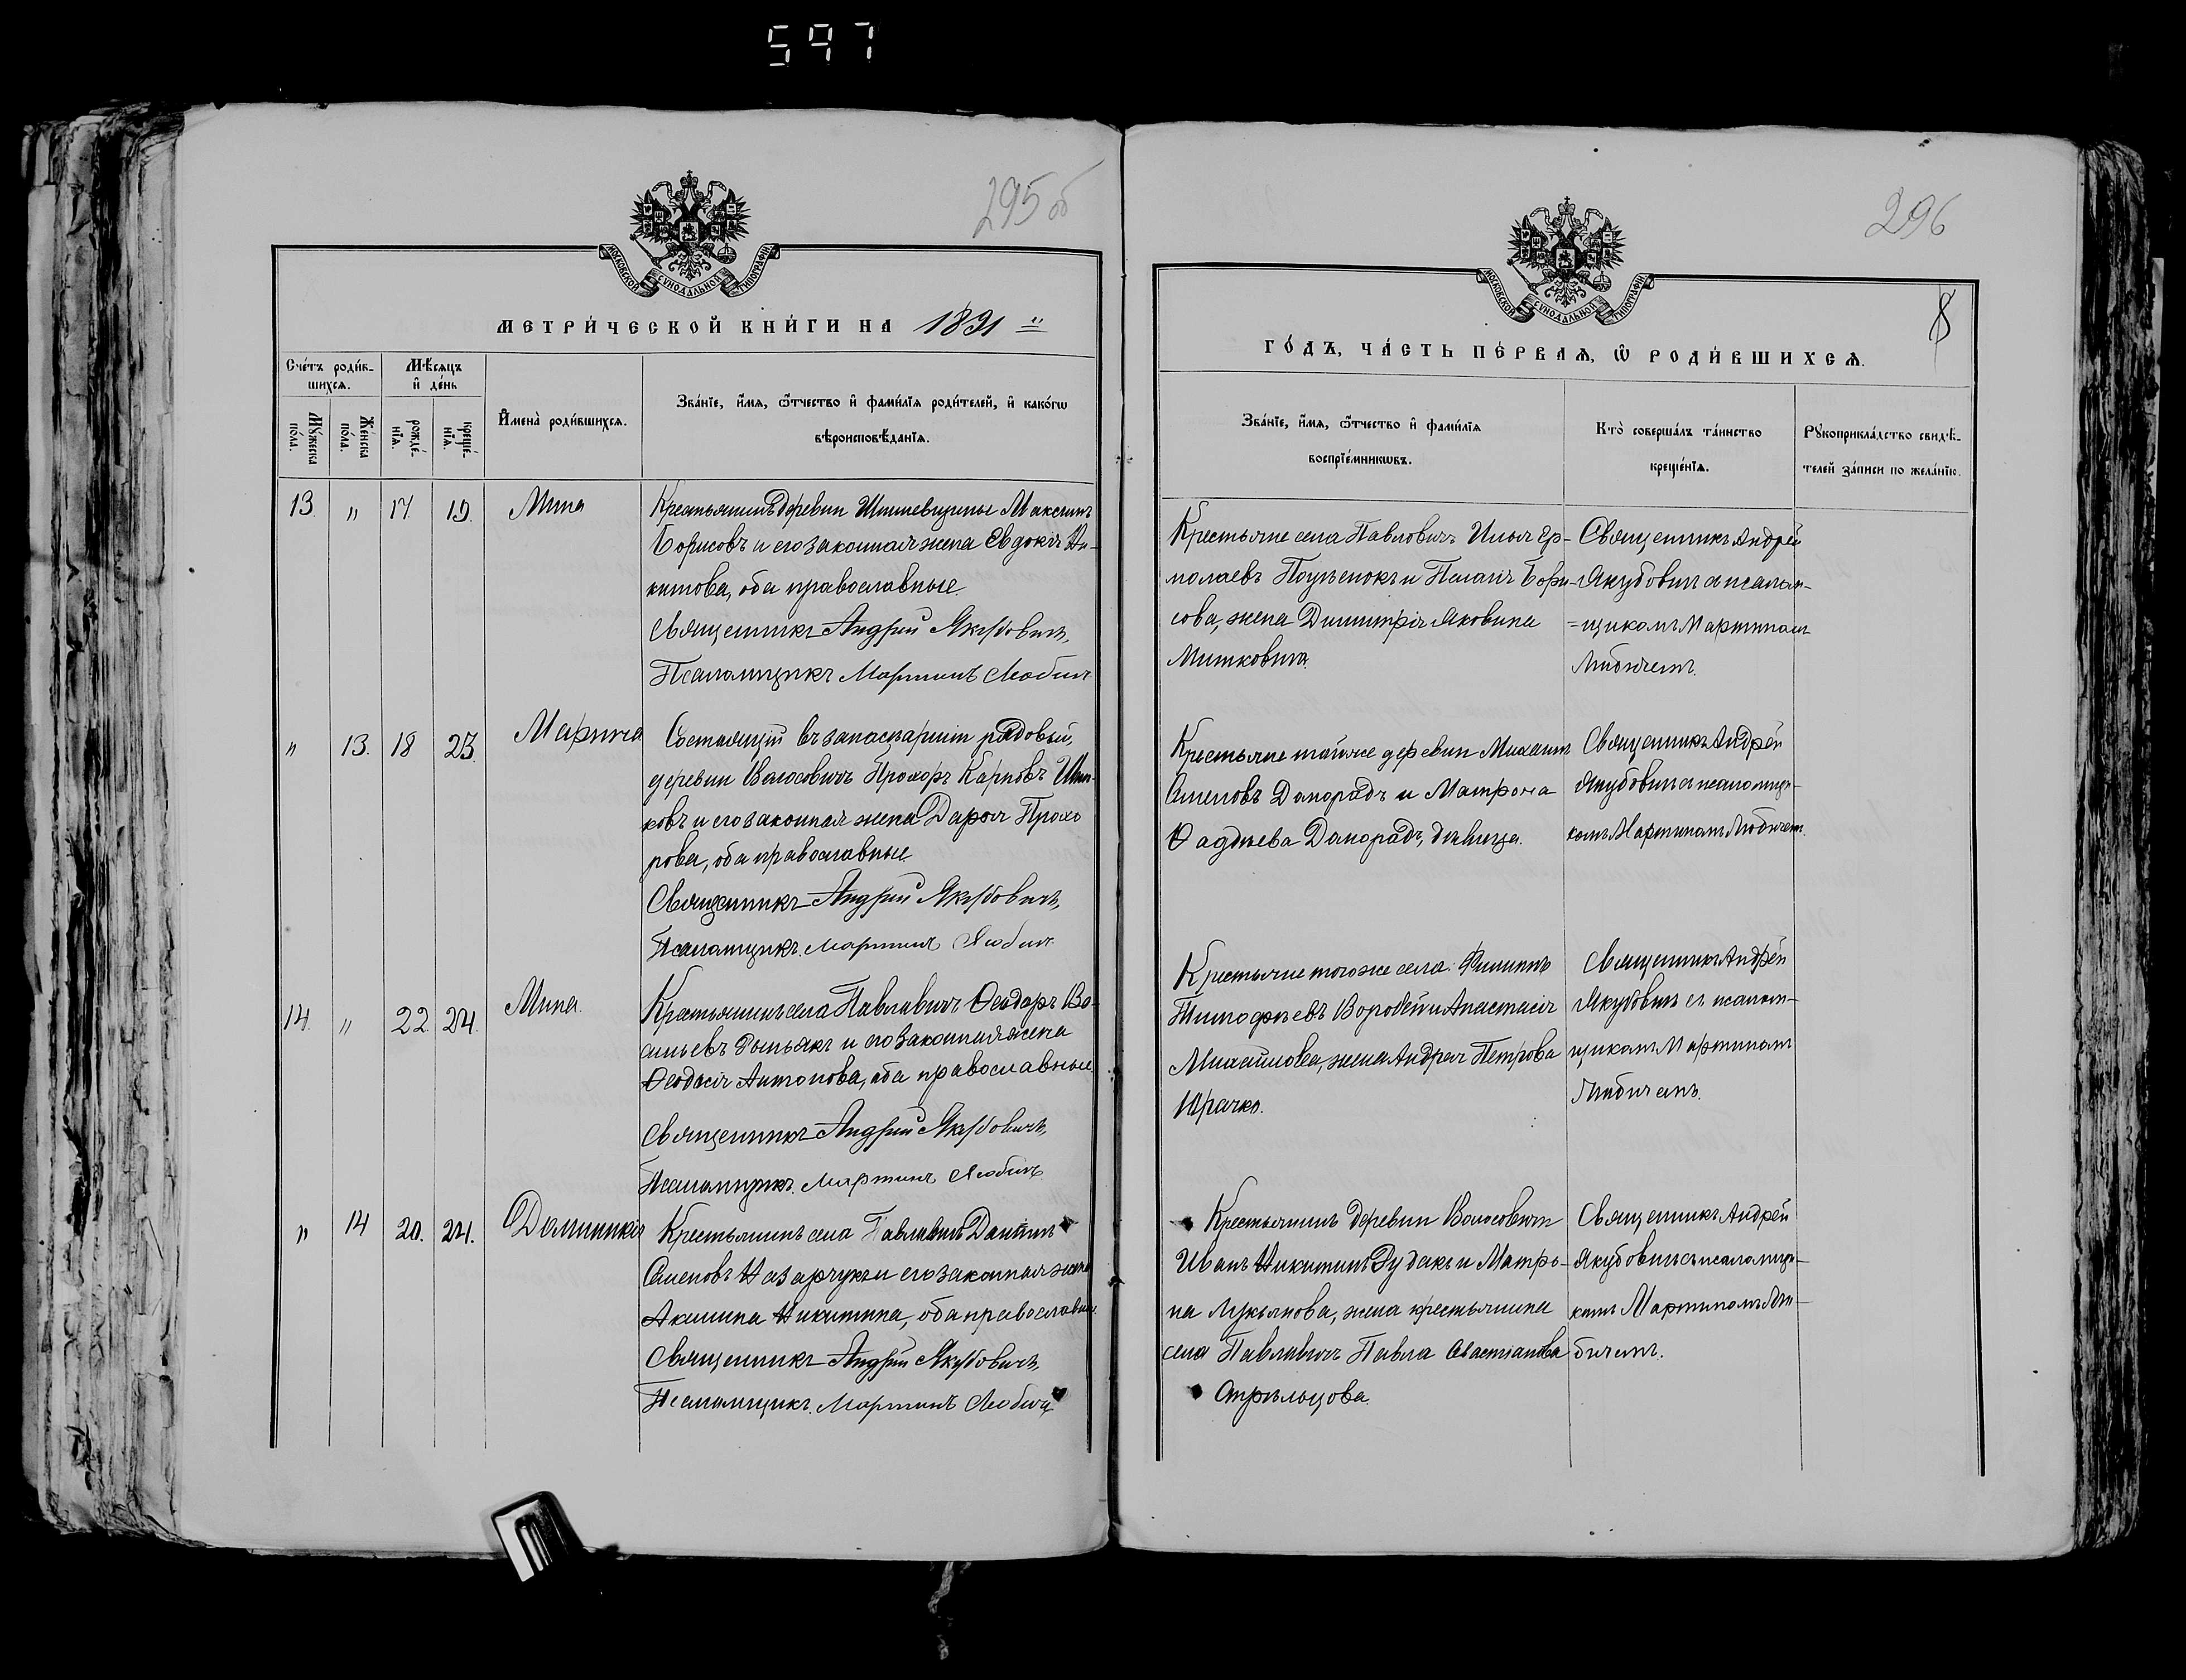 597
295 об
МОСКОВСКОЙ СѴНОДАЛЬНОЙ ТИПОГРАФІИ
МЕТРИ́ЧЕСКОЙ КНИ́ГИ НА 1891
Сче́тъ роди́в-
шихсѧ.
Мѣ́сѧцъ
и҆ де́нь
Мꙋ́жеска
по́ла.
Же́нска
по́ла.
рожде́-
нїѧ.
креще́-
нїѧ.
И҆мена̀ роди́вшихсѧ.
Зва́нїе, и҆́мѧ, ѻ҆́тчество и҆ фами́лїѧ роди́телей, и҆ како́гѡ
вѣроисповѣ́данїѧ.
13. " 17. 19. Мина
Крестьянинъ деревни Максимъ
Борисовъ и его законная жена Евдокія Ни-
китова, оба православные.
Священникъ Андрей Якубовичъ,
Псаломщикъ Мартинъ Любичъ
" 13. 18 23. Марина
Состоящій въ запасѣ арміи рядовой,
деревни Волосовичъ Прохоръ Карповъ
ковъ и его законная жена Дарья Прохо
рова, оба православные
Священникъ Андрей Якубовичъ,
Псаломщикъ Мартинъ Любичъ
14. " 22. 24. Мина.
Крестьянинъ села Павловичъ Ѳеодоръ Ва-
сильевъ и его законная жена
Ѳеодосія Антонова, оба православные
Священникъ Андрей Якубовичъ,
Псаломщикъ Мартинъ Любичъ
" 14 20. 24. Домникія
Крестьянинъ села Павловичъ Даніилъ
Семеновъ Назарчукъ и его законная жена
Акилина Никитина, оба православные
Священникъ Андрей Якубовичъ,
Псаломщикъ Мартинъ Любичъ
296
МОСКОВСКОЙ СѴНОДАЛЬНОЙ ТИПОГРАФІИ
8
ГО́ДЪ, ЧА́СТЬ ПЕ́РВАѦ, Ѡ҆ РОДИ́ВШИХСѦ.
Зва́нїе, и҆́мѧ, ѻ҆́тчество и҆ фами́лїѧ
воспрїе́мникѡвъ.
Кто̀ соверша́лъ та́инство
креще́нїѧ.
Рꙋкоприкла́дство свидѣ́-
телей за́писи по жела́нїю.
Крестьяне села Павловичъ Илья Ер-
молаевъ и Пелагія Бори-
сова, жена Димитрія Яковина
Митковича.
Священникъ Андрей
Якубовичъ съ псалом-
=щикомъ Мартиномъ
Любичемъ.
Крестьяне тойже деревни Михаилъ
Семеновъ Доморадъ и Матрона
Ѳаддѣева Доморадъ, дѣвица.
Священникъ Андрей
Якубовичъ съ псаломщи-
комъ Мартиномъ Любичемъ.
Крестьяне того же села: Филиппъ
Тимофѣевъ Воробей и Анастасія
Михайлова, жена Андрея Петрова
Юрачко.
Священникъ Андрей
Якубовичъ съ псалом-
щикомъ Мартиномъ
Любичемъ.
Крестьянинъ деревни Волосовичъ
Иванъ Никитинъ Рудакъ и Матро-
на Лукьянова, жена крестьянина
села Павловичъ Павла Севастіанова
Стрѣльцова.
Священникъ Андрей
Якубовичъ съ псаломщи-
комъ Мартиномъ Лю-
бичемъ.